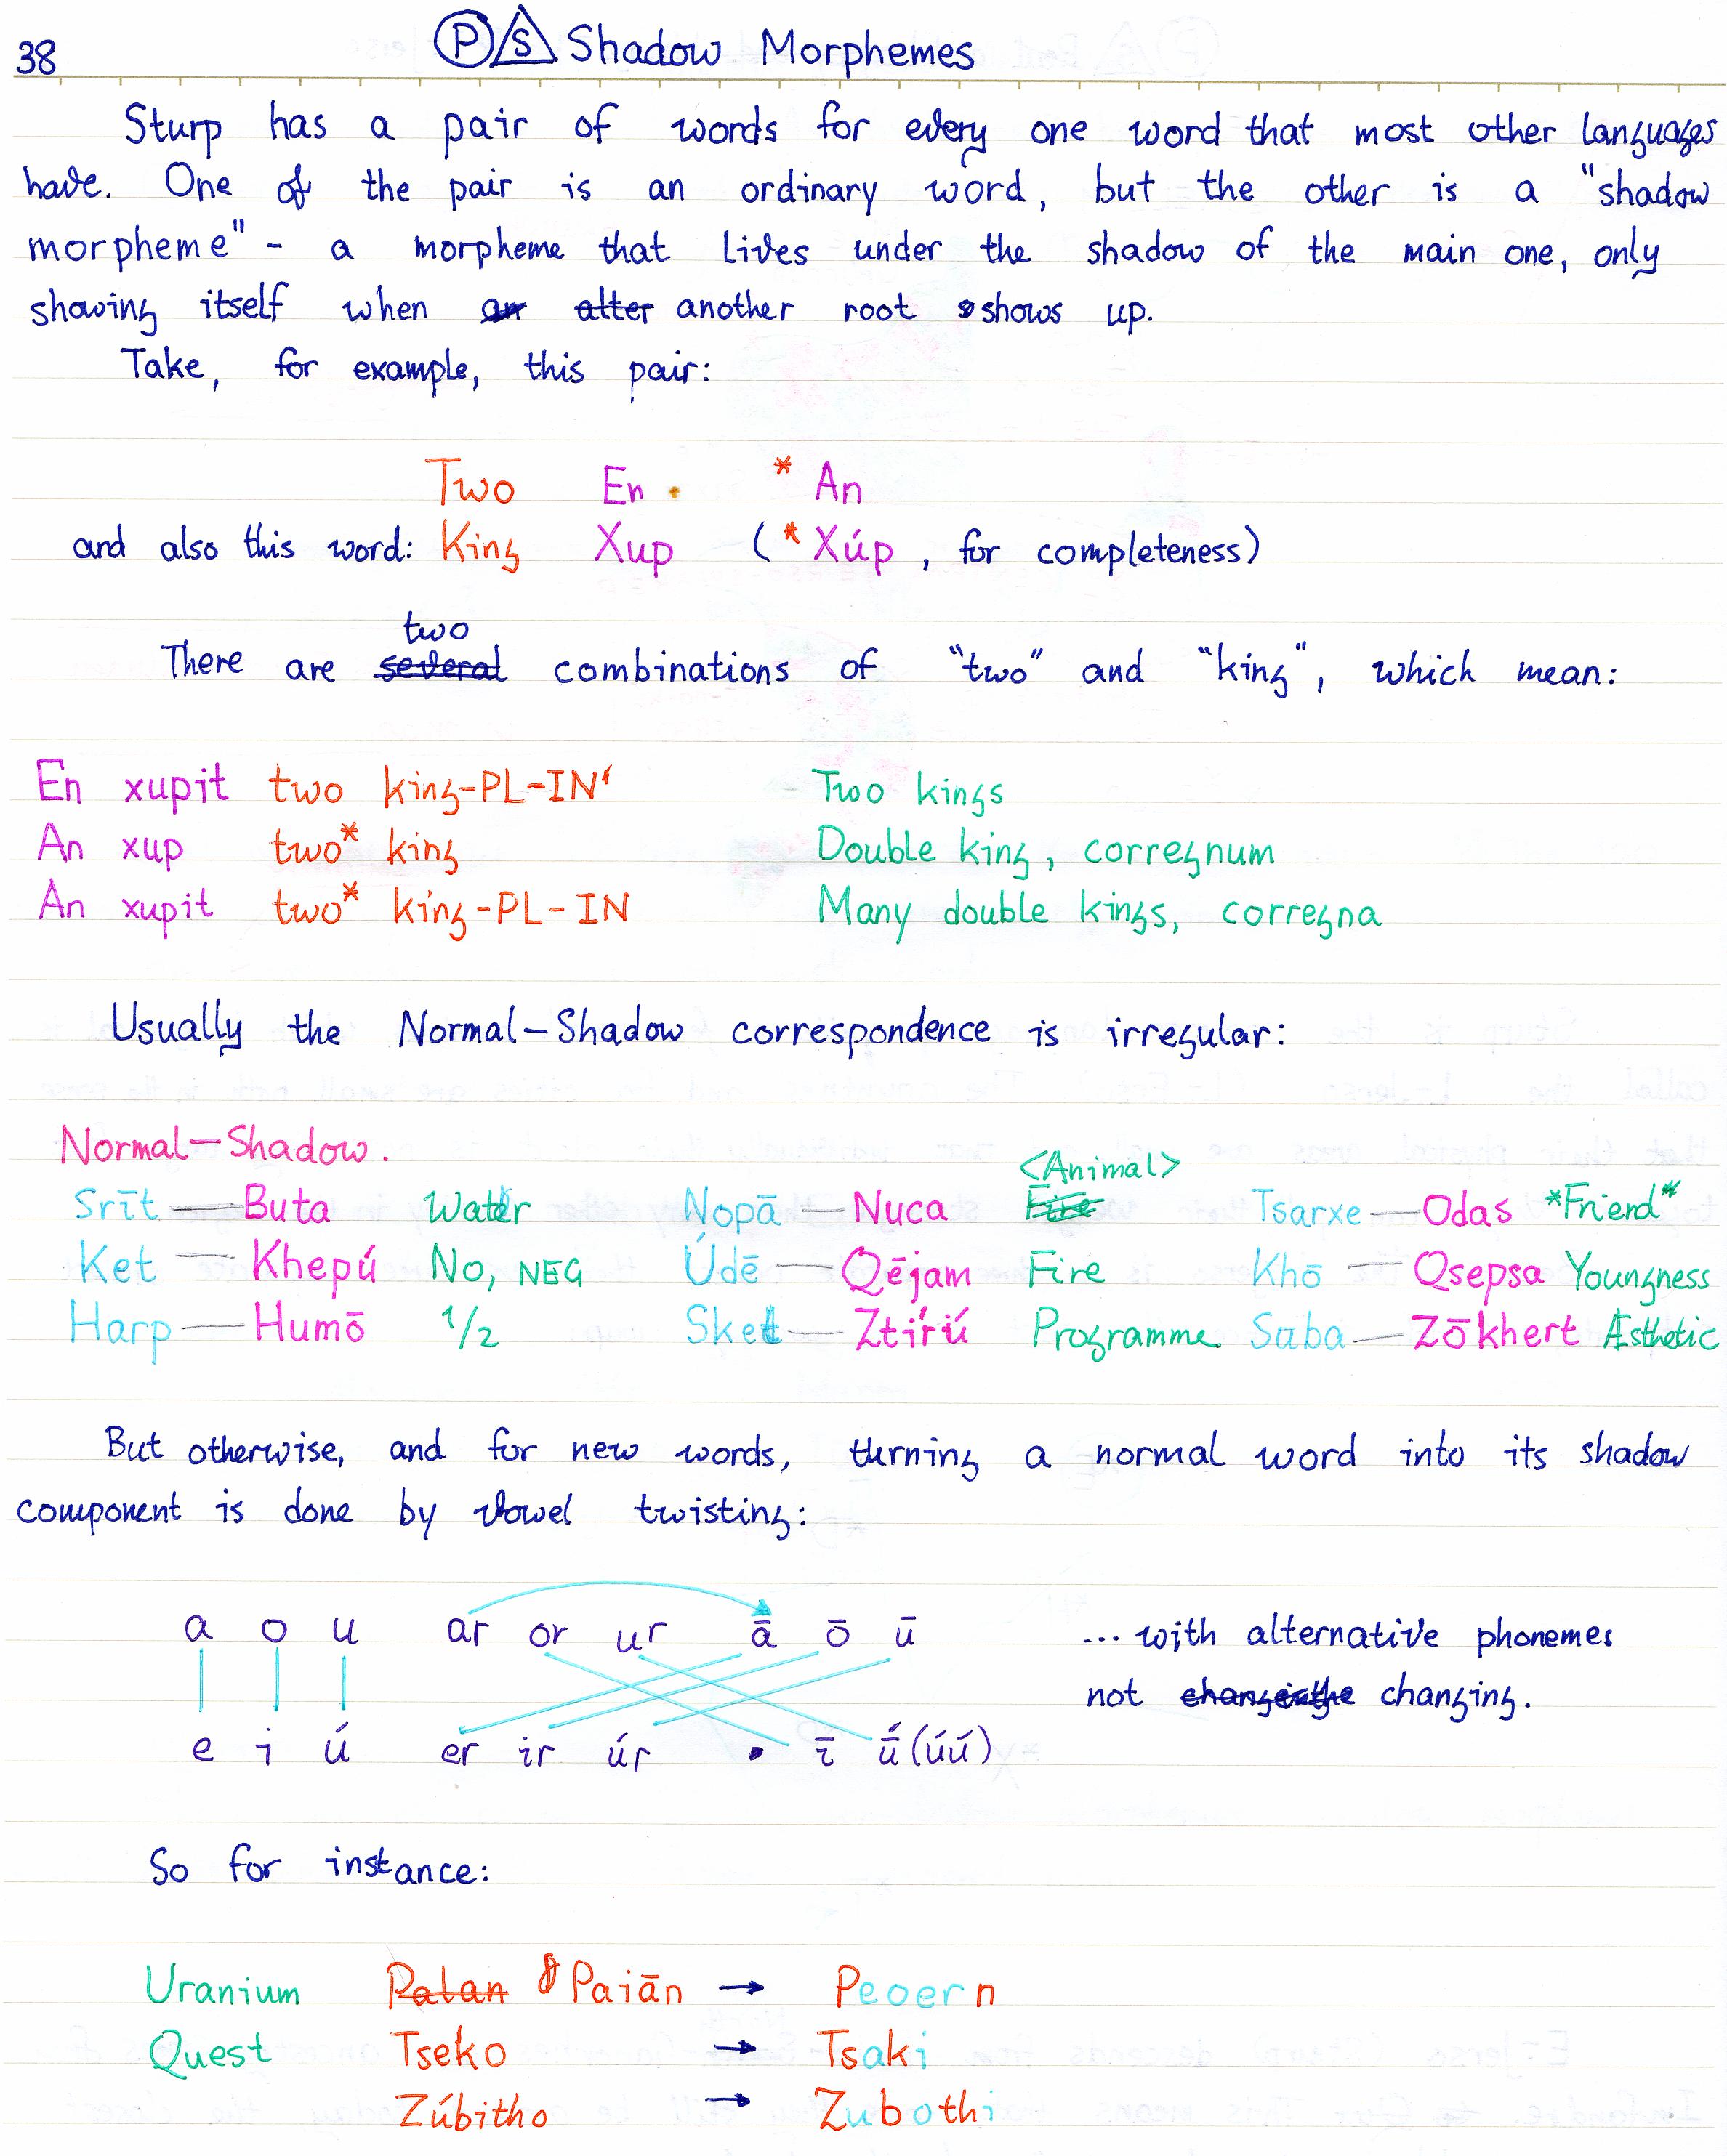 38
P/S Shadow Morphemes
Sturp has a pair of words for every one word that most other languages
have. One of the pair is an ordinary word, but the other is a "shadow
morpheme" - a morpheme that lives under the shadow of the main one, only
showing itself when an alter another root shows up.
Take, for example, this pair:
Two En * An
and also this word: King Xup (*Xúp, for completeness)
two
There are several combinations of "two" and "king", which mean:
En xupit two king-PL-IN Two kings
An xup two* king Double king, corregnum
An xupit two* king-PL-IN Many double kings, corregna
Usually the Normal-Shadow correspondence is irregular:
Normal-Shadow.
<Animal>
Srīt — Buta Water Nopā — Nuca Fire Tsarxe — Odas *Friend*
Ket — Khepú No, NEG Údē — Qējam Fire Khō — Qsepsa Youngness
Harp — Humō 1/2 Sket — Ztírú Programme Suba — Zōkhert Æsthetic
But otherwise, and for new words, turning a normal word into its shadow
component is done by vowel twisting:
a o u ar or ur ā ō ū ...with alternative phonemes
not changing.
e i ú er ir úr • ī ū́ (úú)
So for instance:
Uranium Palan Paiān → Peoern
Quest Tseko → Tsaki
Zúbitho → Zubothi